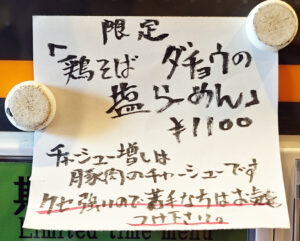 限定
「鶏そば ダチョウの
塩らーめん」
¥1100
チャーシュー増しは
豚肉のチャーシューです
クセ強いので苦手な方はお気を
つけ下さい。
Limited time menu